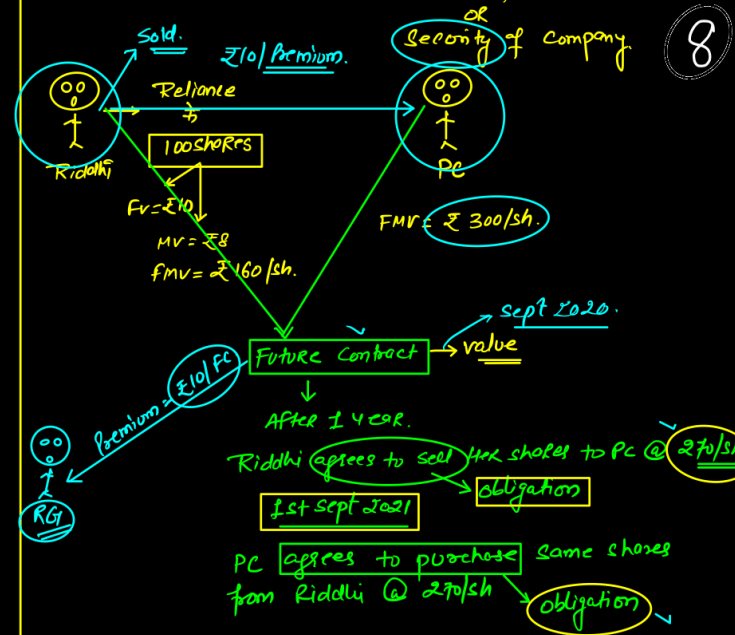 OR
Security of Company.
8
Sold.
₹10/Premium.
Reliance
100 shares
Riddhi
PC
FV = ₹10
MV = ₹8
FMV = ₹160/sh.
FMV = ₹300/sh.
Sept 2020.
Future Contract
value
Premium = ₹10/FC
After 1 year.
Riddhi agrees to sell Her shares to PC @ 270/sh
obligation
RG
1st Sept 2021
PC agrees to purchase same shares
from Riddhi @ 270/sh
obligation